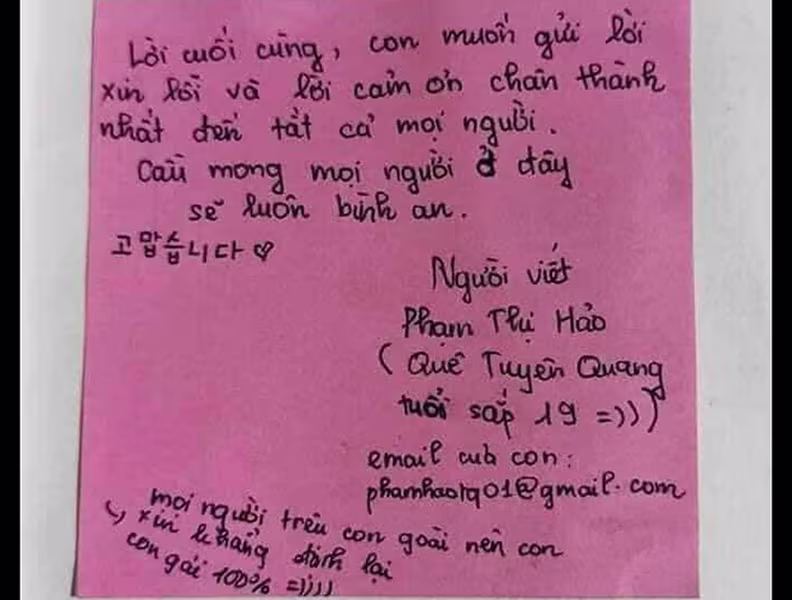 Lời cuối cùng, con muốn gửi lời
xin lỗi và lời cảm ơn chân thành
nhất đến tất cả mọi người.
Cầu mong mọi người ở đây
sẽ luôn bình an.
고맙습니다 ♡
Người viết
Phạm Thị Hảo
( Quê Tuyên Quang
tuổi sắp 19 =)))
email của con:
phamhaotq01@gmail.com
mọi người trêu con goài nên con
xin khẳng định lại
con gái 100% =))))